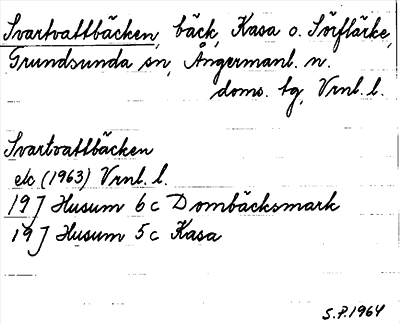 Svartvattbäcken, bäck, Kasa o. Sörflärke,
Grundsunda sn, Ångermanl. n.
doms. bg, Vrnl. l.
Svartvattbäcken
ek (1963) Vrnl. l.
19 J Husum 6 c Dombäcksmark
19 J Husum 5 c Kasa
S.P. 1964